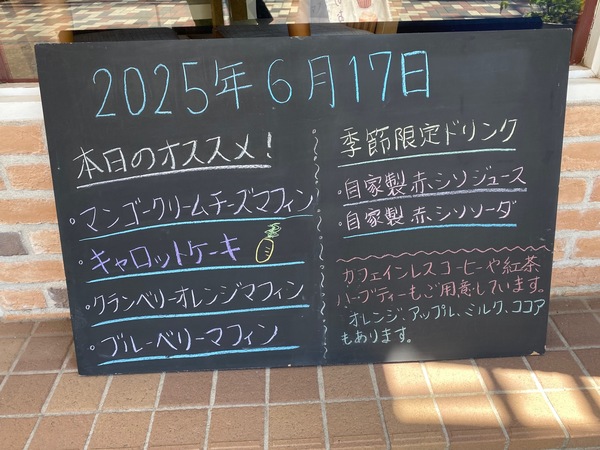 2025年6月17日
本日のオススメ!
・マンゴークリームチーズマフィン
・キャロットケーキ
・クランベリーオレンジマフィン
・ブルーベリーマフィン
季節限定ドリンク
・自家製赤シソジュース
・自家製赤シソソーダ
カフェインレスコーヒーや紅茶
ハーブティーもご用意しています。
オレンジ、アップル、ミルク、ココア
もあります。